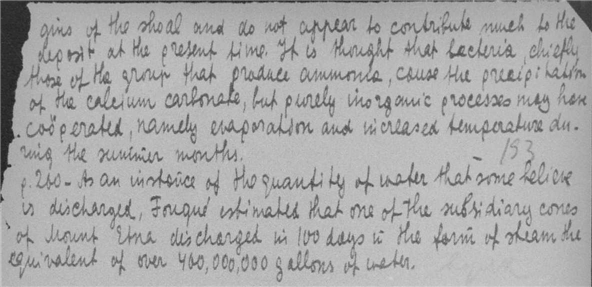 gins of the shoal and do not appear to contribute much to the
deposit at the present time. It is thought that bacteria, chiefly
those of the group that produce ammonia, cause the precipitation
of the calcium carbonate, but purely inorganic processes may have
coöperated, namely evaporation and increased temperature du-
ring the summer months.
153
p. 260- As an instance of the quantity of water that some believe
is discharged, Fouqué estimated that one of the subsidiary cones
of Mount Etna discharged in 100 days in the form of steam the
equivalent of over 460,000,000 gallons of water.